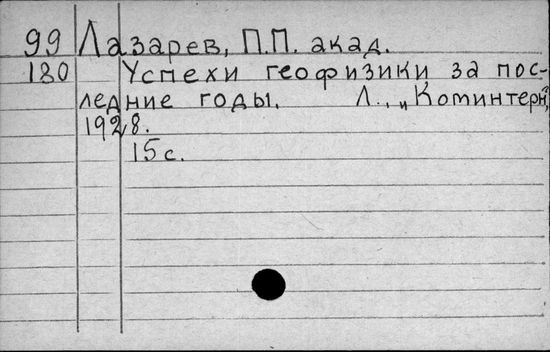 99 Лазарев, П.П. акад.
180 Успехи геофизики за пос-
ледние годы. Л., „Коминтерн",
1928.
15 с.